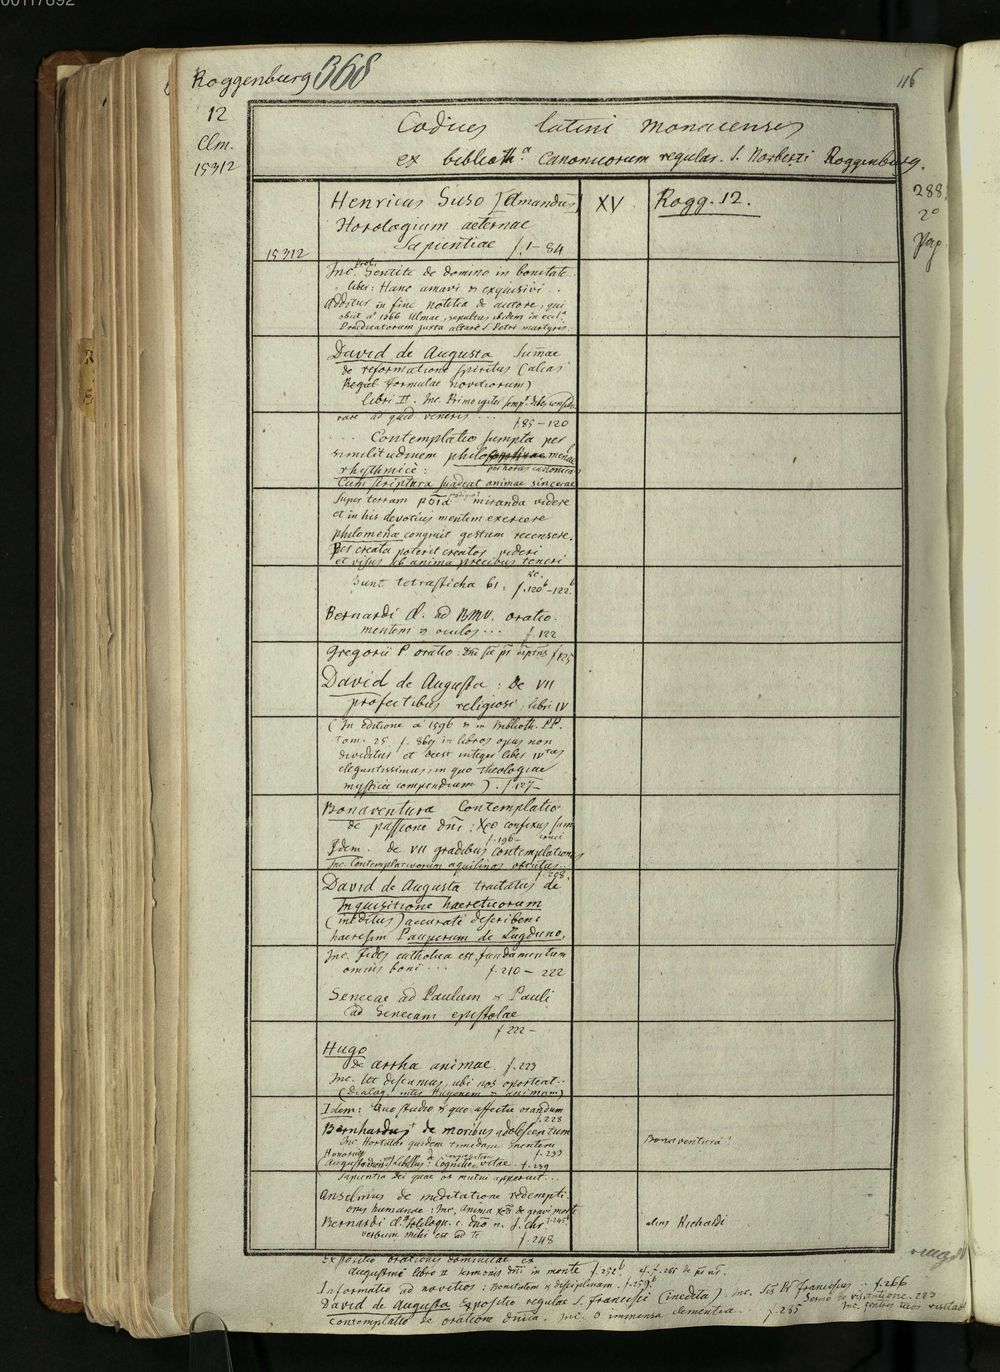 Roggenburg 368
116
12
Clm.
15312
Codices latini monacenses
ex biblioth.a canonicorum regular. S. Norberti Roggenburg.
Henricus Suso [Amandus]
XV
Rogg. 12.
288.
2°
Pap.
Horologium aeternae
Sapientiae f. 1–84
15312
Inc. Sentite de domino in bonitate..
liber: Hanc amavi & exquisivi..
Additur in fine notitia de autore, qui
obiit a° 1366 Ulmae, sepultus ibidem in eccl.a
Praedicatorum juxta altare S. Petri martyris.
David de Augusta Summae
de reformatione spiritus (alias
Regul formulae novitiorum)
libri II. Inc. Primo igitur semper debes conside
rare ad quid veneris ... f. 85–120
... Contemplatio sumpta per
similitudinem philomenae
rhythmice: per horas canonicas
Cum scriptura suadeat animae sincerae
super terram miranda videre
et in his devotius mentem exercere
philomenae congruit gestum recensere.
Per creata poterit creator videri
et visus ab anima precibus teneri
Sunt tetrasticha 61. f. 120b–122b
Bernardi d. ad BMV. oratio.
mentem & oculos... f. 122
Gregorii P oratio: f. 125
David de Augusta: de VII
profectibus religiosi, libri IV
(In editione a 1596 & in Biblioth. PP.
tom. 25. f. 869 in libros opus non
dividitur et deest integer liber IVtus
elegantissimus, in quo theologiae
mysticae compendium). f. 127–
Bonaventura Contemplatio
de passione dni: Xpo confixus sum
cruci f. 196–
Idem. de VII gradibus contemplationis
Inc. Contemplativorum aquilinos obtutus..
f. 208.
David de Augusta tractatus de
Inquisitione haereticorum
(ineditus) accurate describens
haeresim Pauperum de Lugduno.
Inc. Fides catholica est fundamentum
omnis boni ... f. 210–222
Senecae ad Paulum & Pauli
ad Senecam epistolae
f. 222–
Hugo
de arrha animae. f. 223
Inc. ubi nos oporteat..
(Dialog. inter Hugonem & animam)
Idem: Quo studio & quo affectu orandum
f. 228
Bernhardus de moribus adolescentum
Bonaventura
f. 233
Honorius
(Augustodun) libellus: Cognitio vitae. f. 239
Sapientia Dei quae os muti aperuit...
Anselmus de meditatione redempti
onis humanae: Inc. anima xna de gravi morte
f. 245
Bernardi
alias Richardi
verbum mihi est ad te f. 248
Expositio orationis dominicae ex
Augustino libro II sermonis dni in monte f. 252b
Informatio ad novitios: Bonitatem & disciplinam. f. 259b
David de Augusta Expositio regulae S. Francisci (inedita). Inc. Franciscus.. f. 266
Sermo de visitatione. 283
Contemplatio de oratione dnica. Inc. O immensa clementia... f. 285